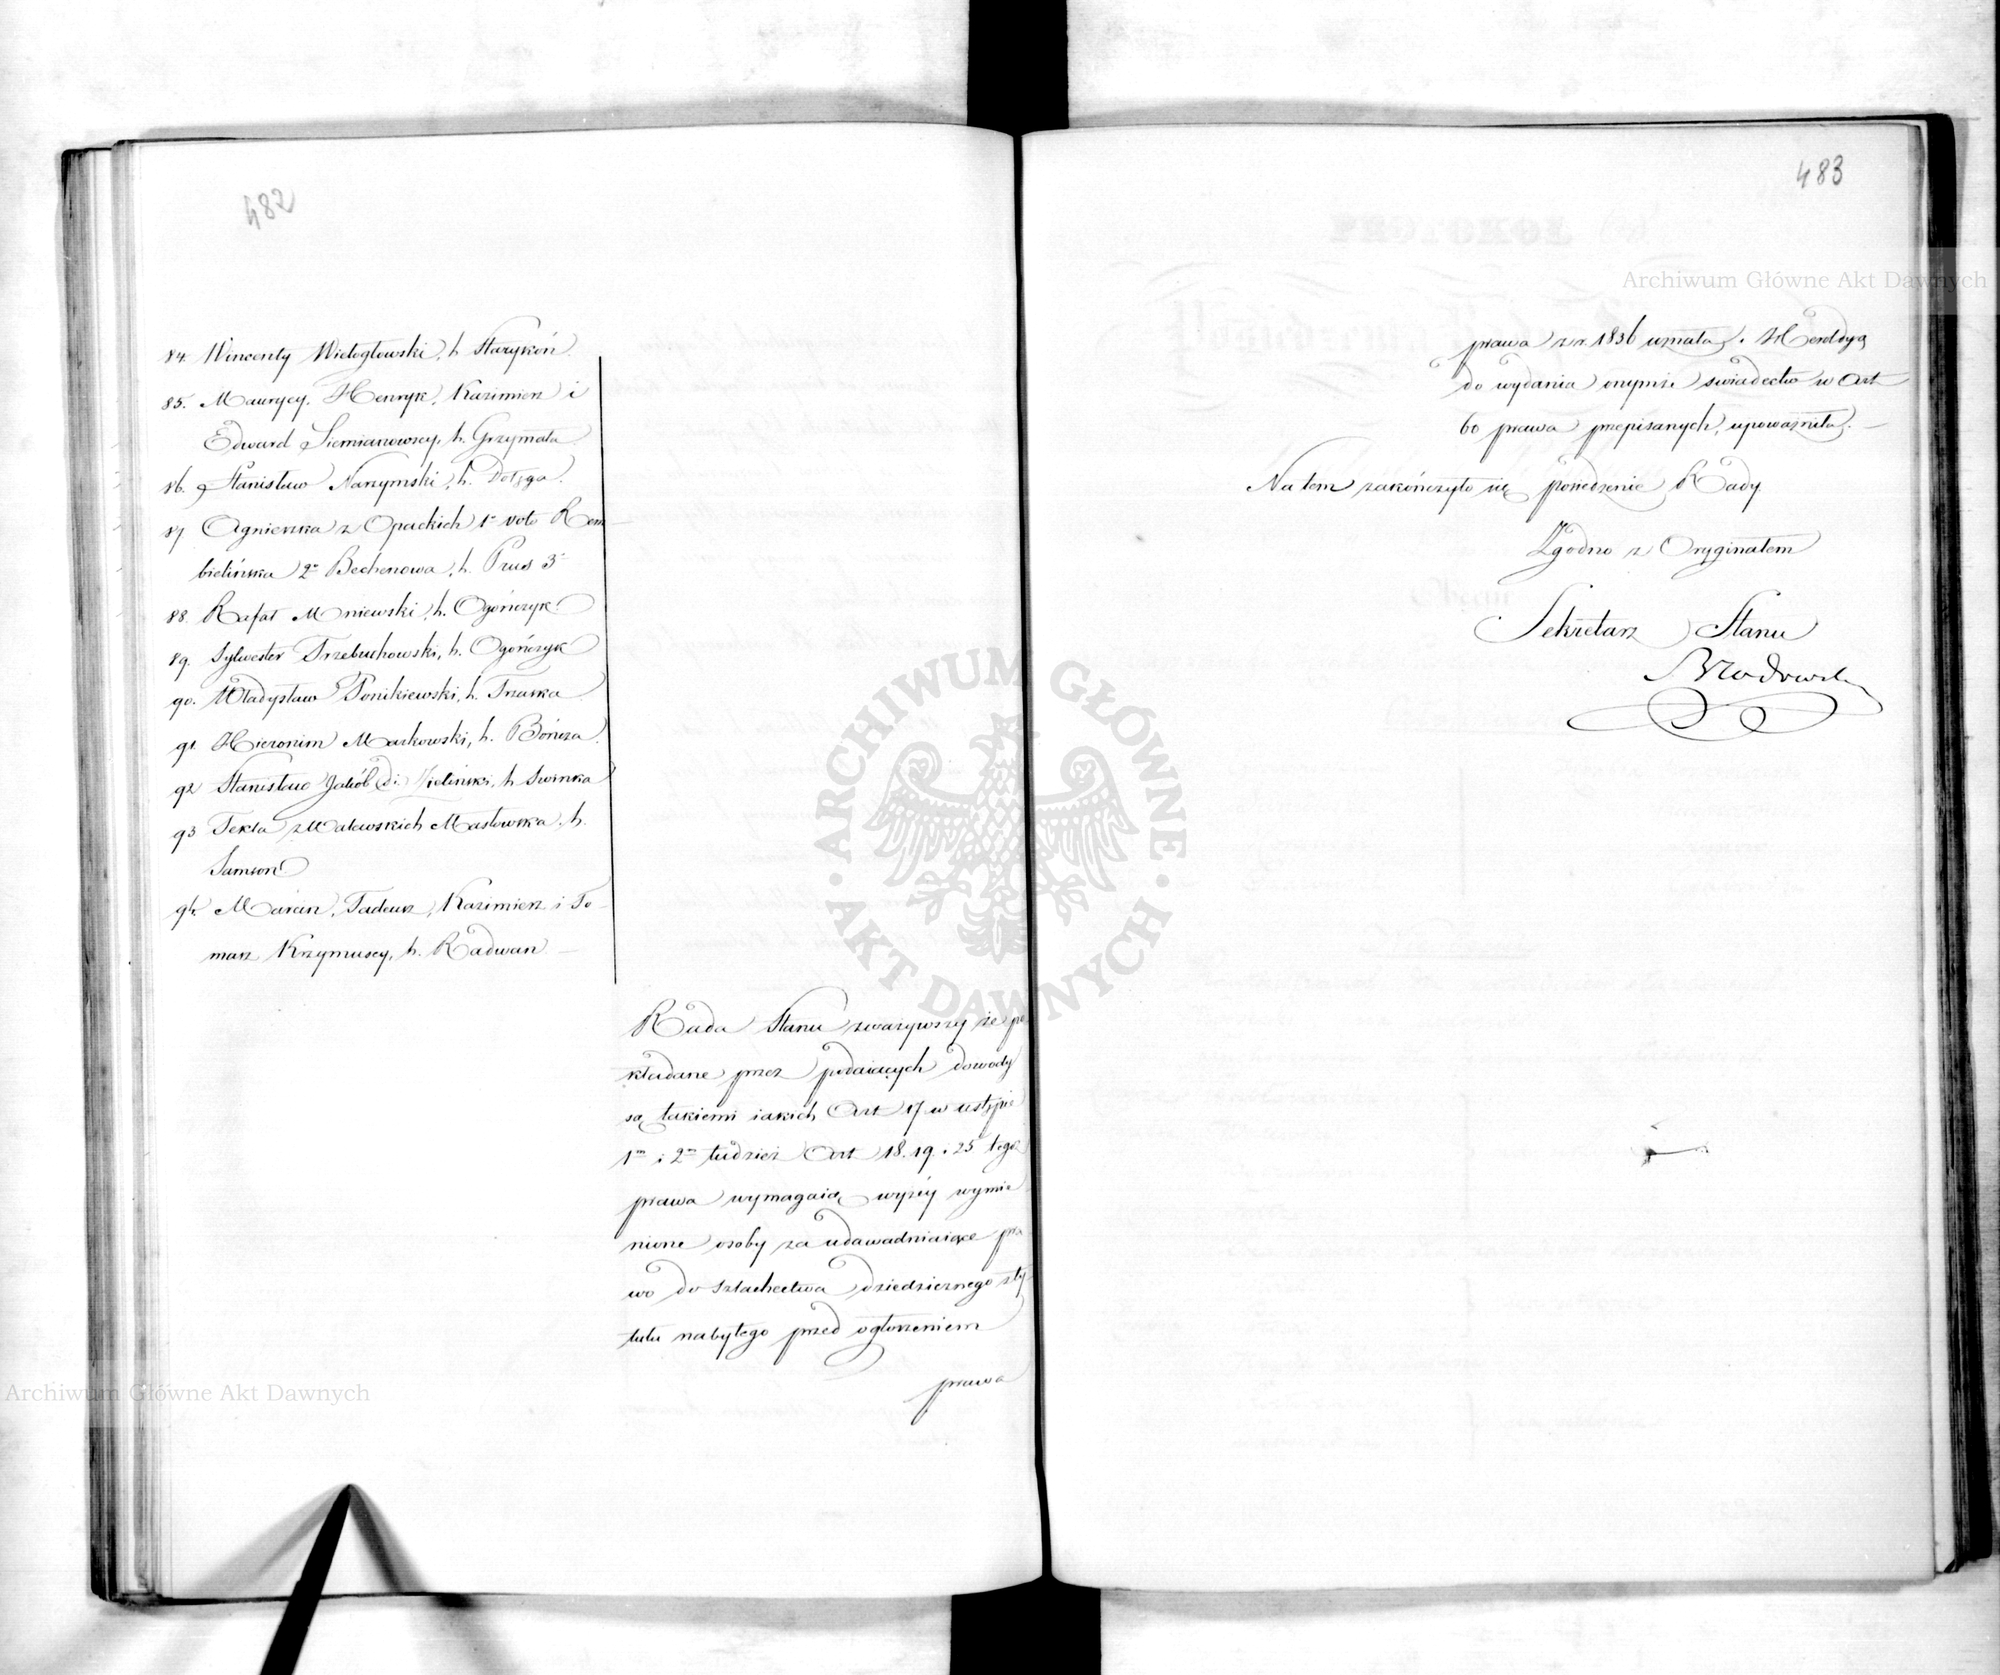 482
84. Wincenty Wielogłowski, h. Starykoń.
85. Maurycy, Henryk, Kazimierz i
Edward Siemianowscy, h. Grzymała
86. Stanisław Narzymski, h. Dołęga.
87 Agnieszka z Opackich 1o voto Rem
bielińska 2o Bechonowa, h. Prus 3o
88. Rafał Mniewski, h. Ogończyk
89. Sylwester Trzebuchowski, h. Ogończyk
90. Władysław Ponikiewski, h. Trzaska
91 Hieronim Markowski, h. Bończa.
92 Stanisław Jakób Zieliński, h Swinka
93 Tekla z Malewskich Masłowska, h.
Samson
94. Marcin, Tadeusz, Kazimierz i To-
masz Krzymuscy, h. Radwan —
Rada Stanu zważywszy że po
kładane przez podaiących dowody
są takiemi iakich Art 17 w ustępie
1m i 2m tudzież Art 18. 19. i 25 tegoż
prawa wymagaią wyżéy wymie
nione osoby za udawadniaiące pra
wo do szlachectwa dziedzicznego z ty
tułu nabytego przed ogłoszeniem
prawa
483
prawa z r. 1836 uznała, i Heroldyą
do wydania onymże świadectw w Art
60 prawa przepisanych, upoważniła. —
Na tem zakończyło się posiedzenie Rady
Zgodno z Oryginałem
Sekretarz Stanu
Archiwum Główne Akt Dawnych
ARCHIWUM GŁÓWNE
AKT DAWNYCH
Archiwum Główne Akt Dawnych